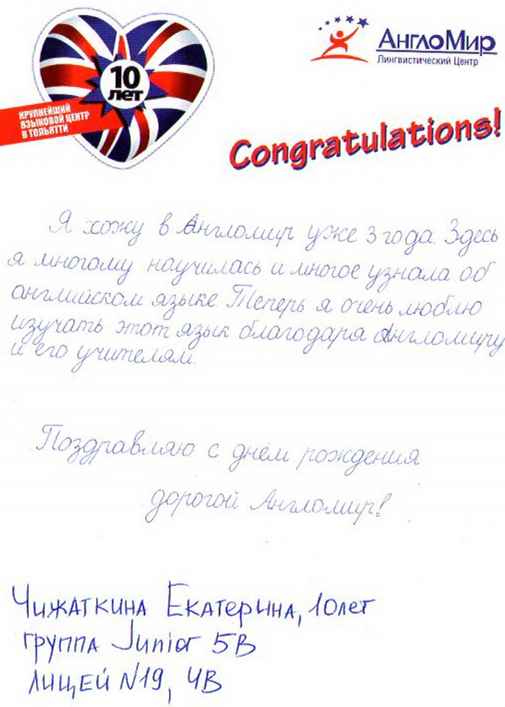 10
лет
КРУПНЕЙШИЙ
ЯЗЫКОВОЙ ЦЕНТР
В ТОЛЬЯТТИ
АнглоМир
Лингвистический Центр
Congratulations!
Я хожу в Англомир уже 3 года. Здесь
я многому научилась и многое узнала об
английском языке. Теперь я очень люблю
изучать этот язык благодаря Англомиру
и его учителям.
Поздравляю с днём рождения
дорогой Англомир!
Чижаткина Екатерина, 10 лет
группа Junior 5В
лицей №19, 4В